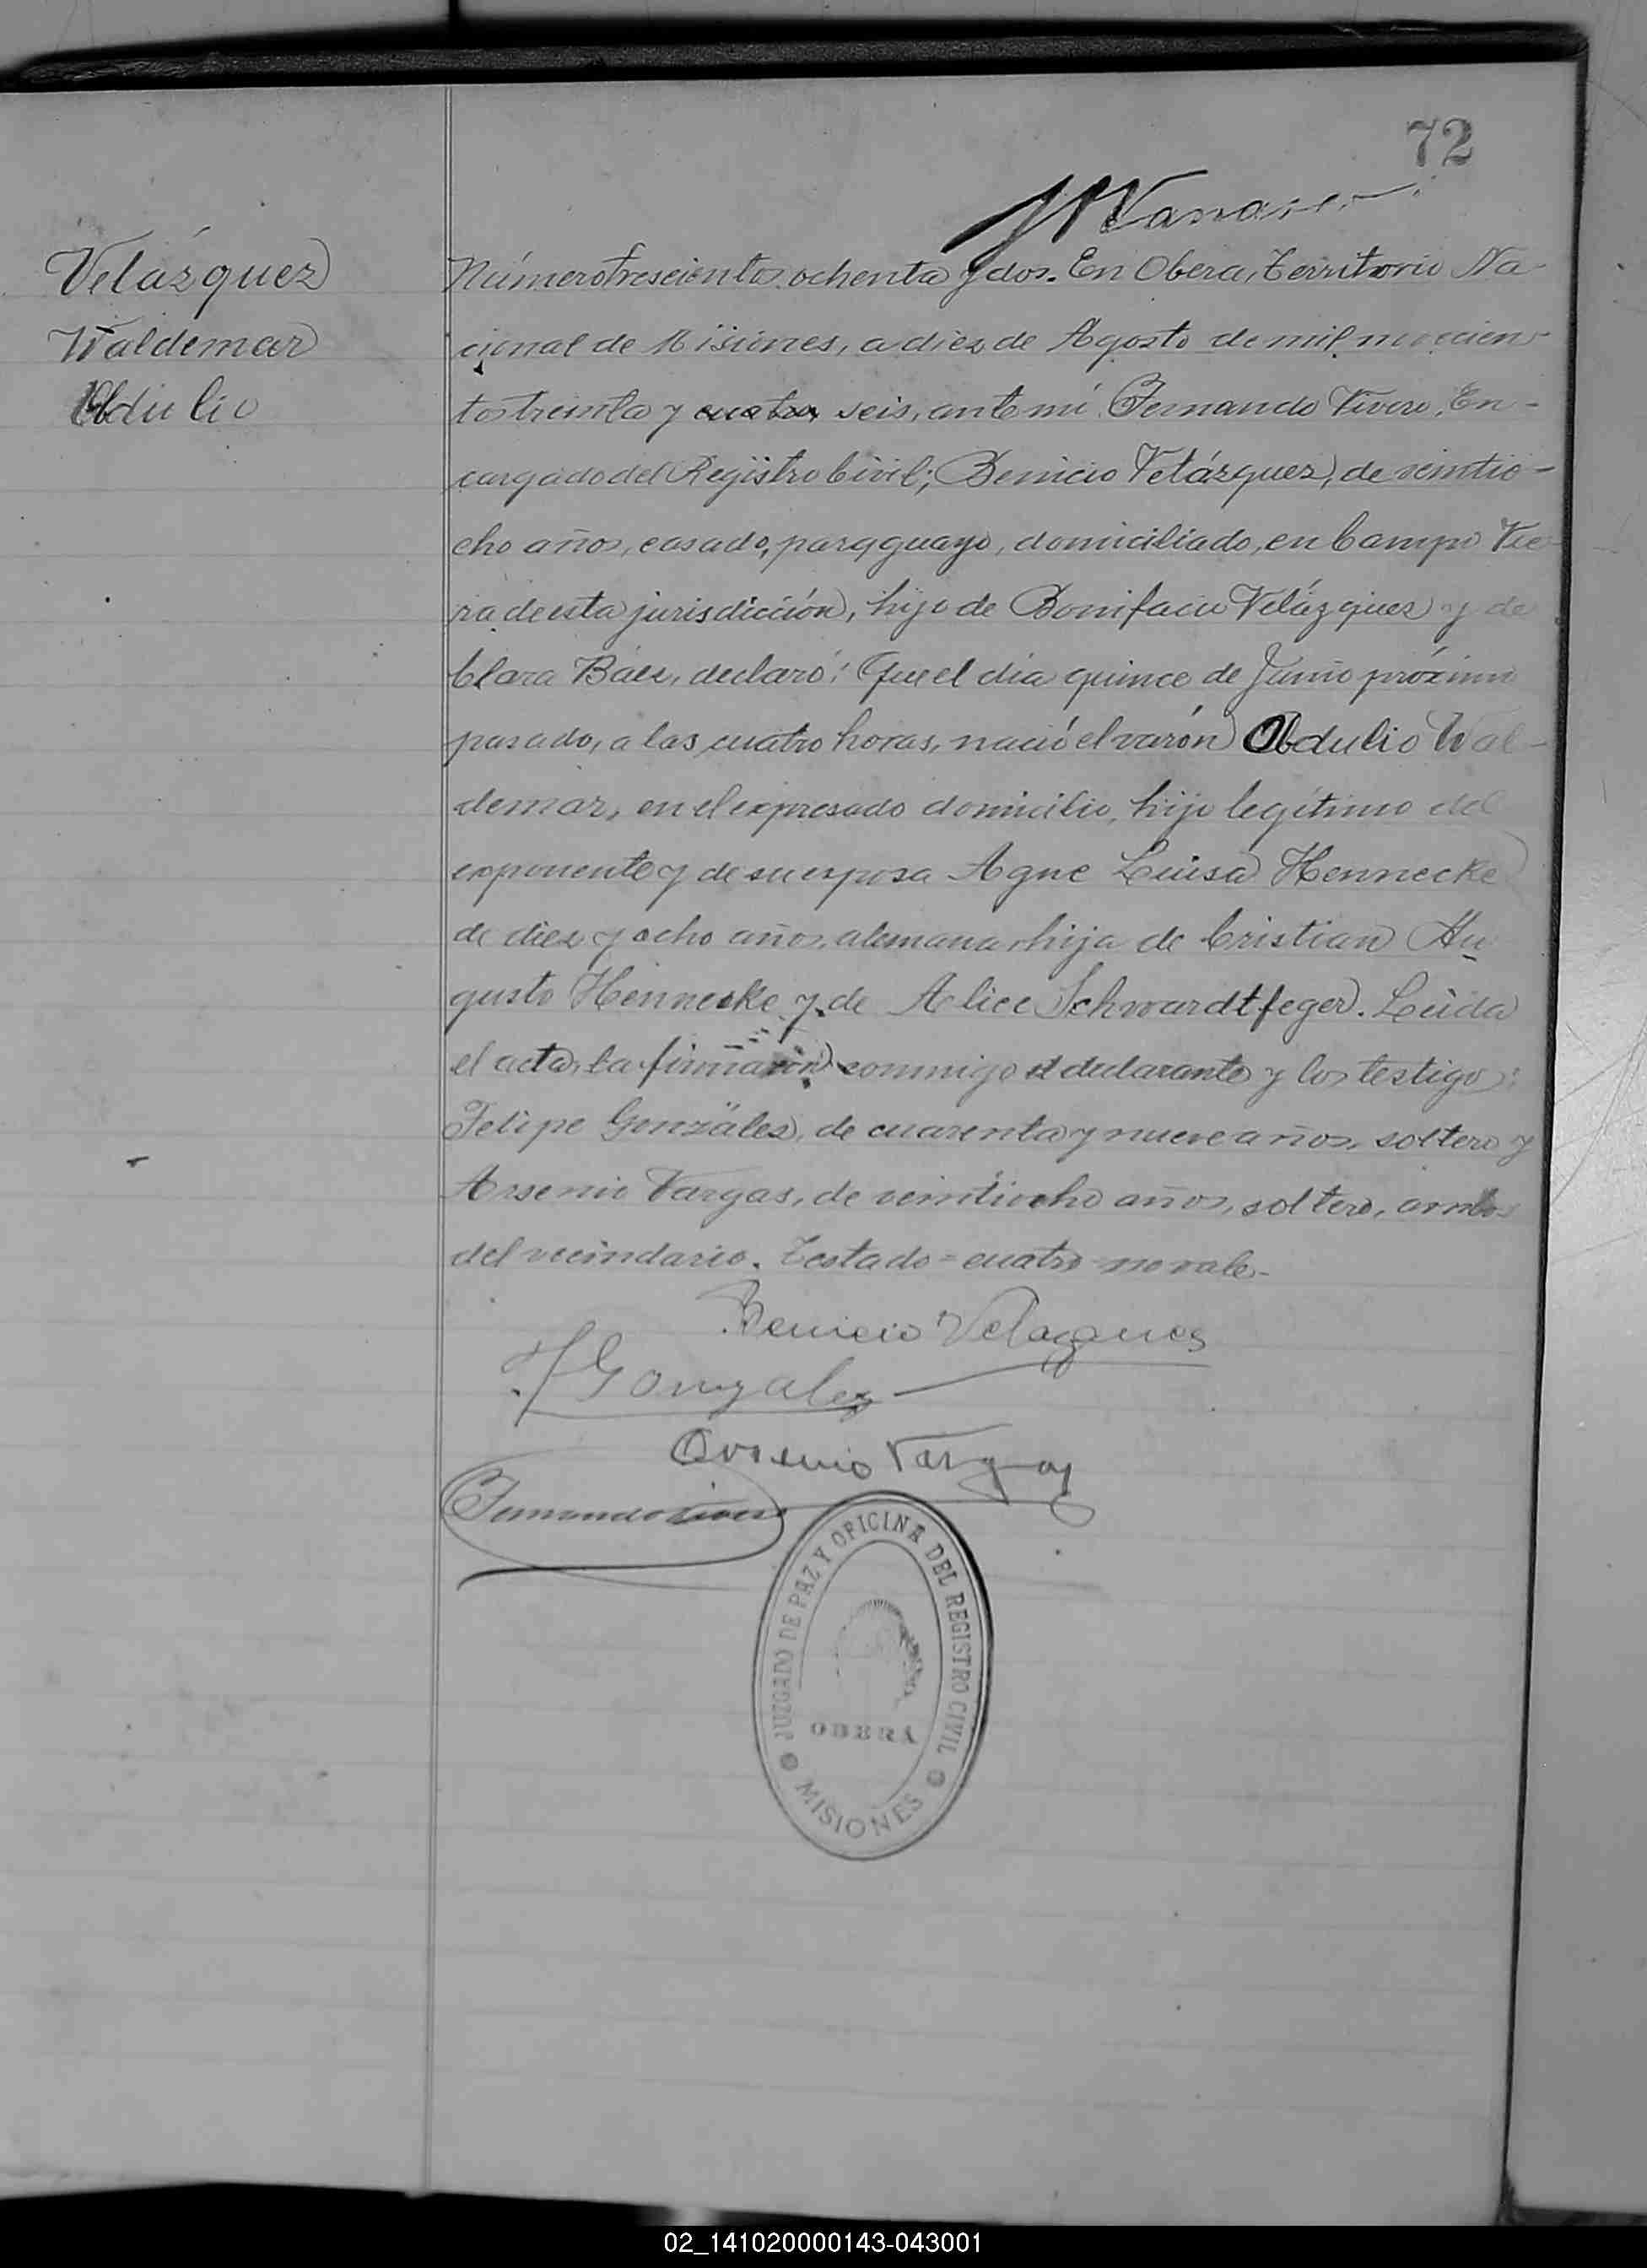 72
Velázquez
Waldemar
Obdulio
Número trescientos ochenta y dos. En Obera, Territorio Na-
cional de Misiones, a diez de Agosto de mil novecien-
tos treinta y cuatro seis, ante mí Fernando Vivero, En-
cargado del Registro Civil; Benicio Velázquez, de veintio-
cho años, casado, paraguayo, domiciliado, en Campo Vie-
ra de esta jurisdicción, hijo de Bonifacio Velázquez y de
Clara Báez, declaró: Que el día quince de Junio próximo
pasado, a las cuatro horas, nació el varón Obdulio Wal-
demar, en el expresado domicilio, hijo legítimo del
exponente y de su esposa Agne Luisa Hennecke
de diez y ocho años, alemana, hija de Cristian Au-
gusto Hennecke y de Alice Schwardtfeger. Leída
el acta, la firmaron conmigo el declarante y los testigos:
Felipe González, de cuarenta y nueve años, soltero y
Arsenio Vargas, de veintiocho años, soltero, ambos
del vecindario. Testado = cuatro = no vale-
Benicio Velazques
F Gonzalez
Arsenio Vargas
Fernando Vivero
JUZGADO DE PAZ Y OFICINA DEL REGISTRO CIVIL
OBERÁ
MISIONES
02_141020000143-043001